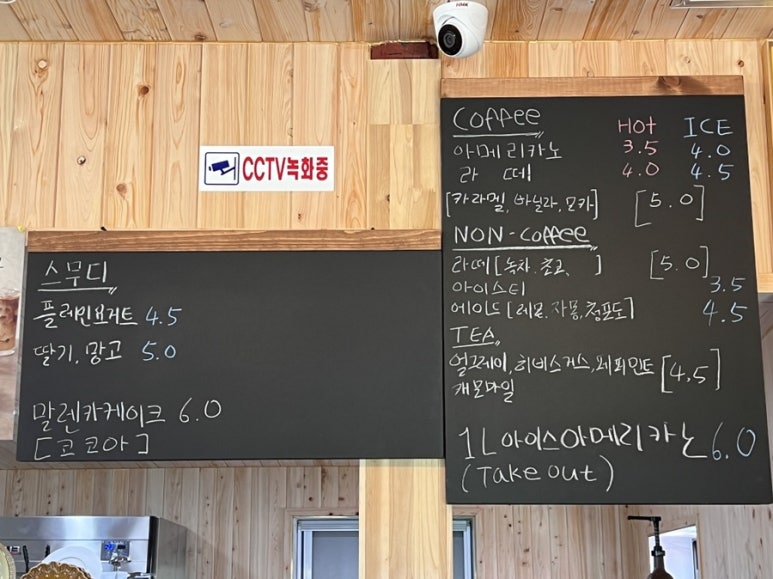 CCTV녹화중
스무디
플레인요거트 4.5
딸기, 망고 5.0
말렌카케이크 6.0
[코코아]
Coffee HOt ICE
아메리카노 3.5 4.0
라 떼 4.0 4.5
[카라멜, 바닐라, 모카] [5.0]
NON-Coffee
라떼[녹차, 초코, ] [5.0]
아이스티 3.5
에이드[레몬, 자몽, 청포도] 4.5
TEA
얼그레이, 히비스커스, 페퍼민트 [4.5]
캐모마일
1L 아이스아메리카노 6.0
(Take out)